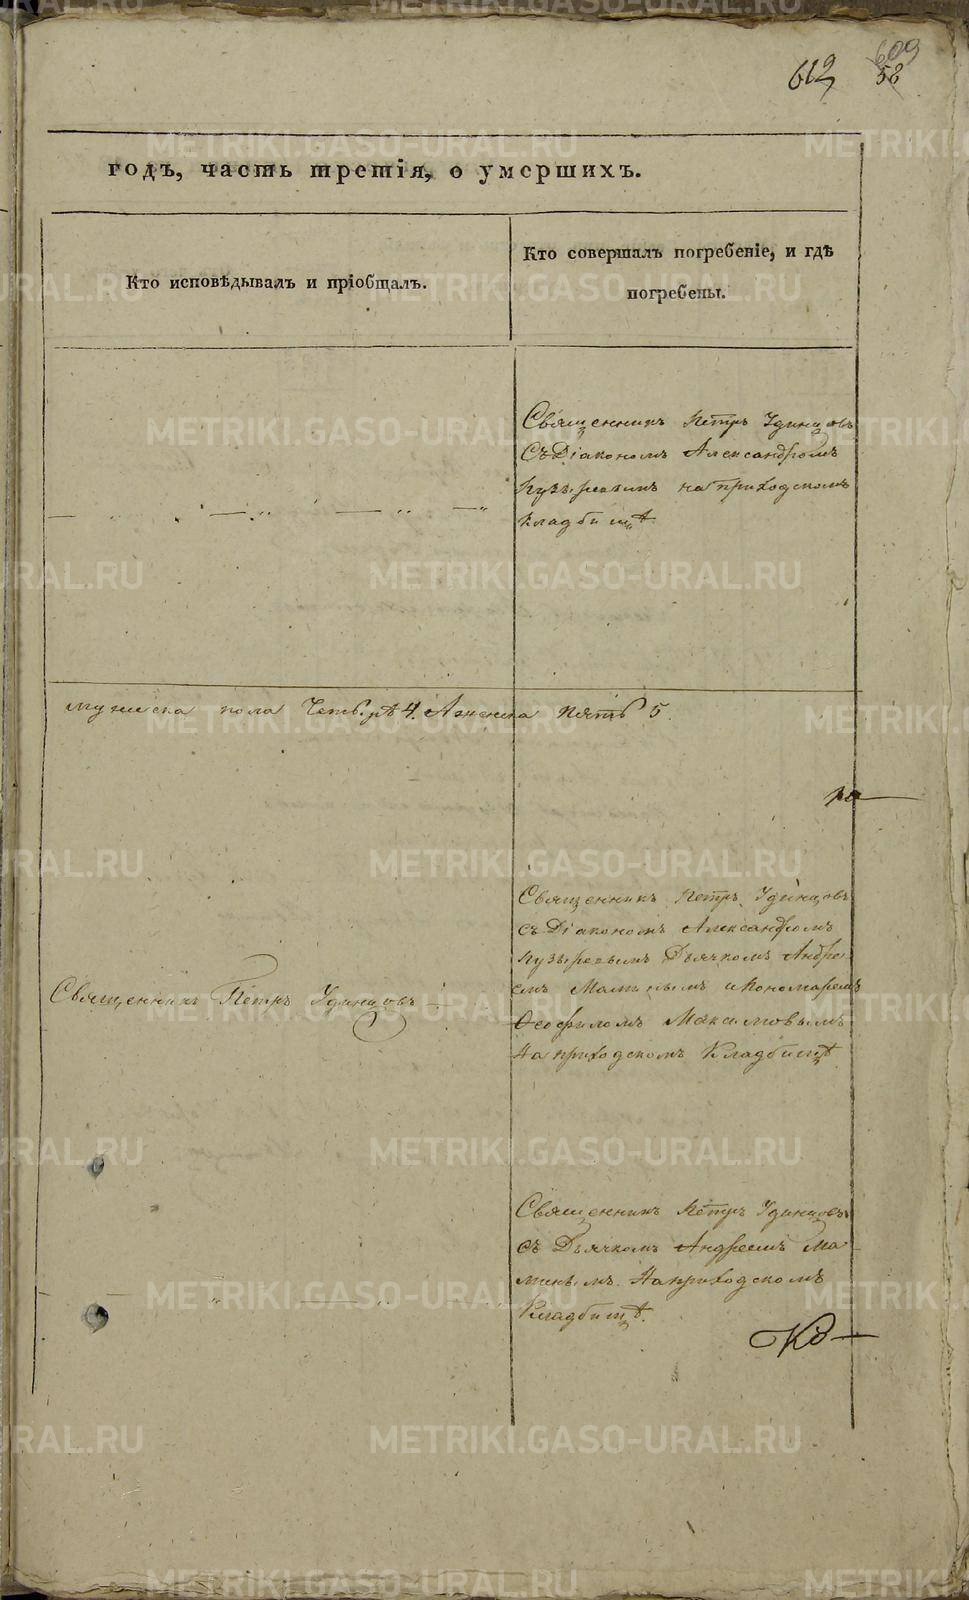 612 609
58
годъ, часть третія, о умершихъ.
Кто исповѣдывалъ и пріобщалъ.
Кто совершалъ погребеніе, и гдѣ
погребены.
Священникъ Петръ Удинцовъ
Съ Діакономъ Александромъ
Кузьревымъ на приходскомъ
Кладбищѣ
мужеска пола Четыре 4. А женска Пять 5
Священникъ Петръ Удинцовъ
Священникъ Петръ Удинцовъ
съ Діакономъ Александромъ
Кузыревымъ Дьячкомъ Андре-
емъ и Пономаремъ
Ѳеофиломъ Максимовымъ
На приходскомъ Кладбищѣ
Священникъ Петръ Удинцовъ
съ Дьячкомъ Андреемъ Ма-
На приходскомъ
Кладбищѣ.
METRIKI.GASO-URAL.RU